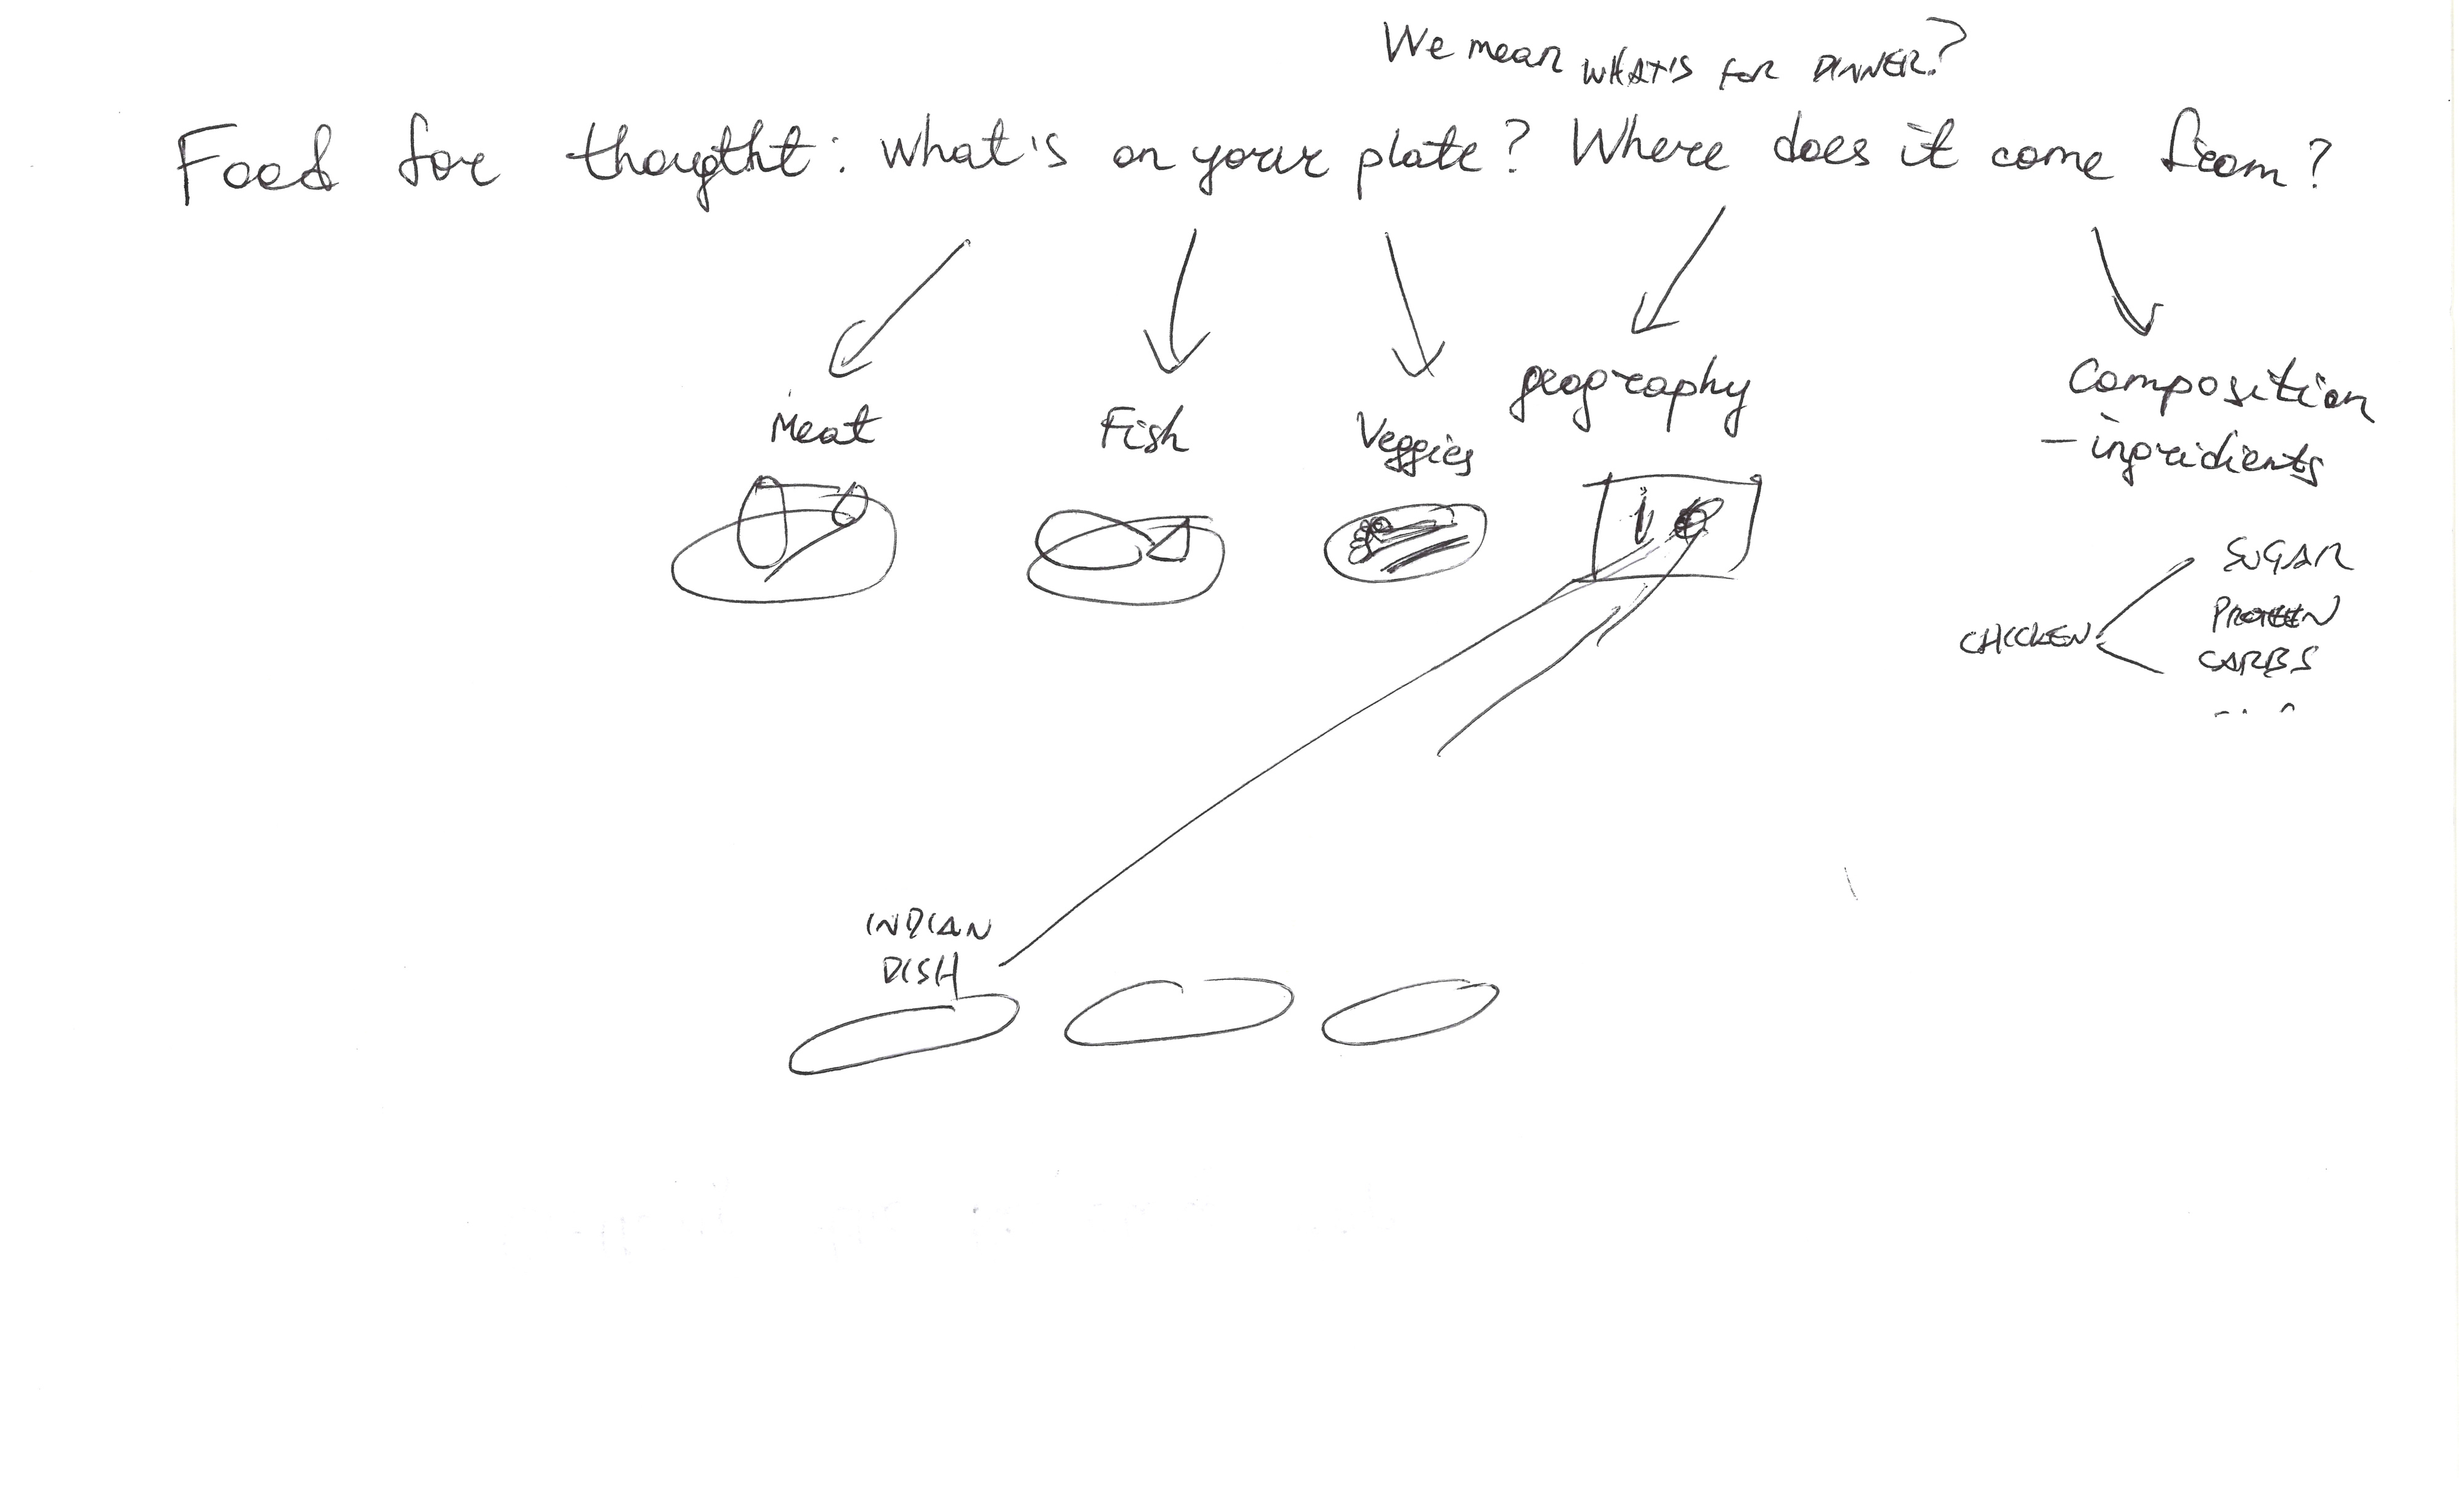 We mean WHAT'S FOR DINNER?
Food for thougtht: What's on your plate? Where does it come from?
Meat
Fish
Veggies
geography
Composition
- ingridients
CHICKEN
SUGAR
PROTEIN
CARBS
...
INDIAN
DISH